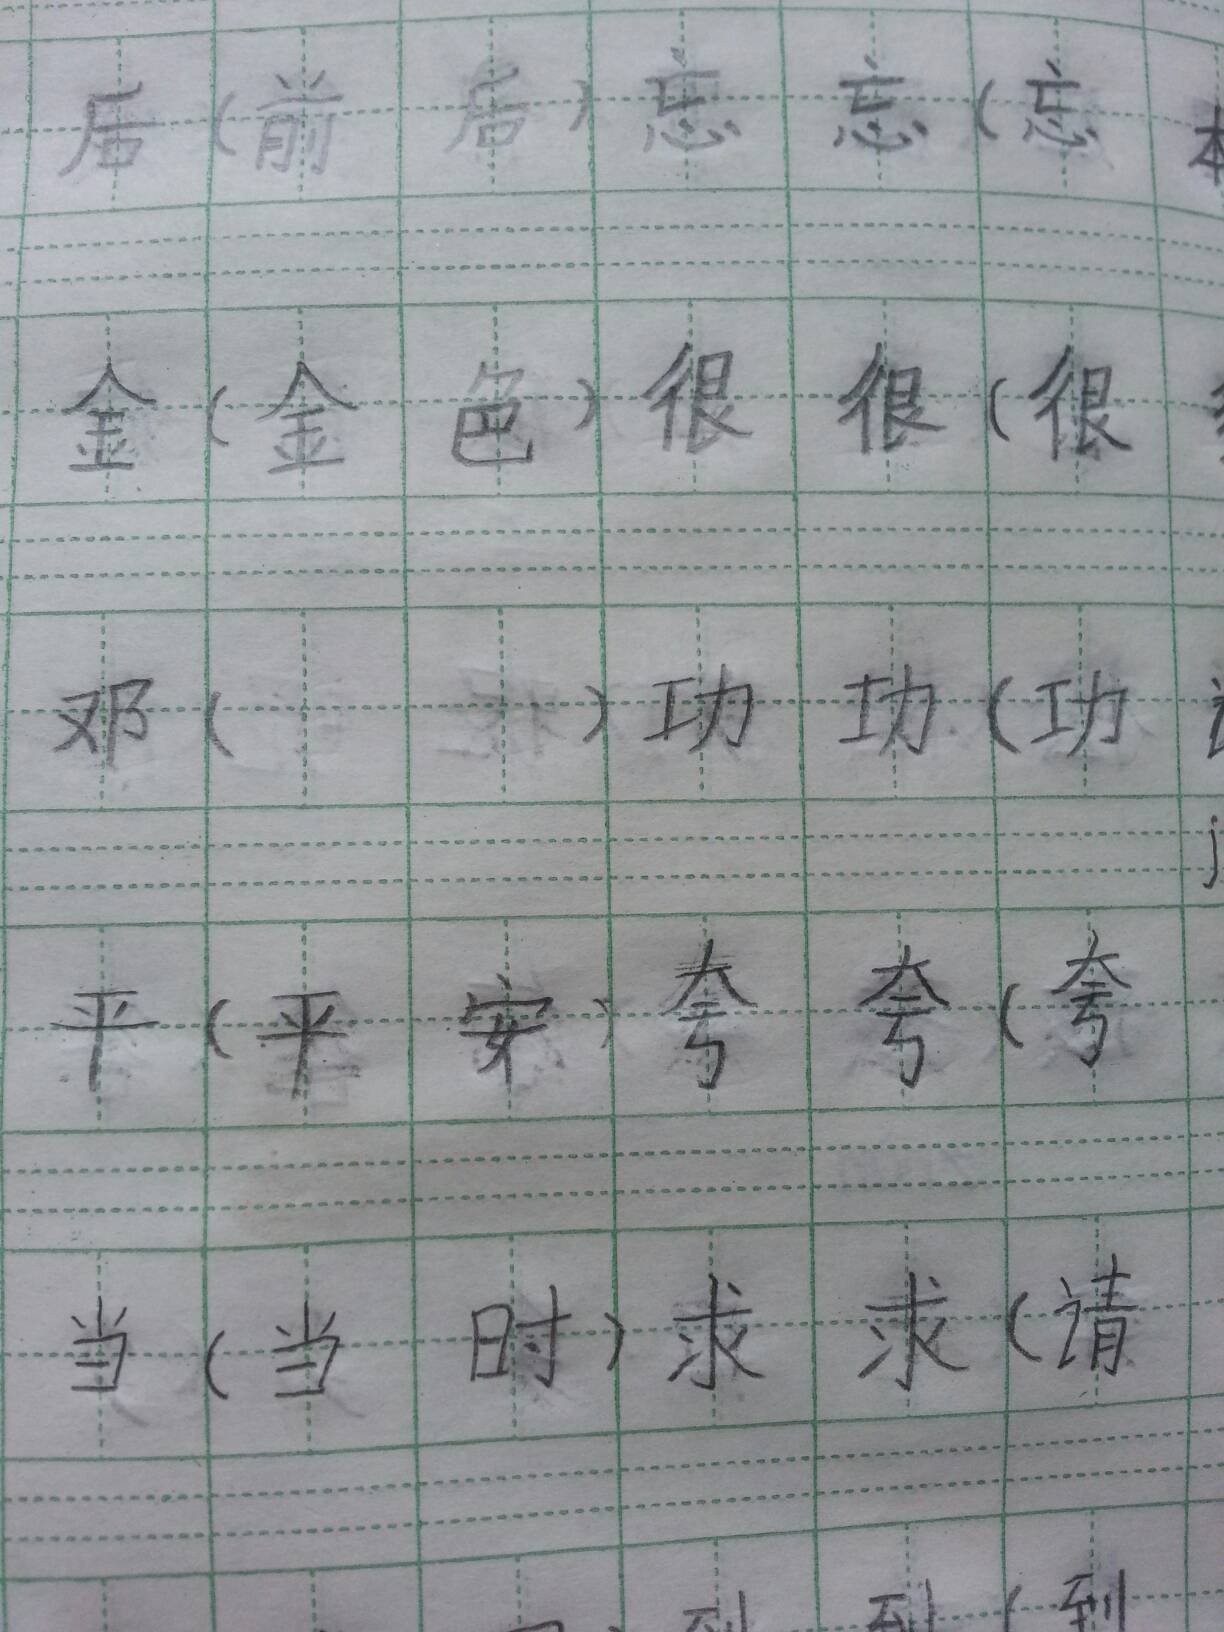 后（前后）忘忘（忘
金（金色）很很（很
邓（ ）功功（功
平（平安）夸夸（夸
当（当时）求求（请
到到（到